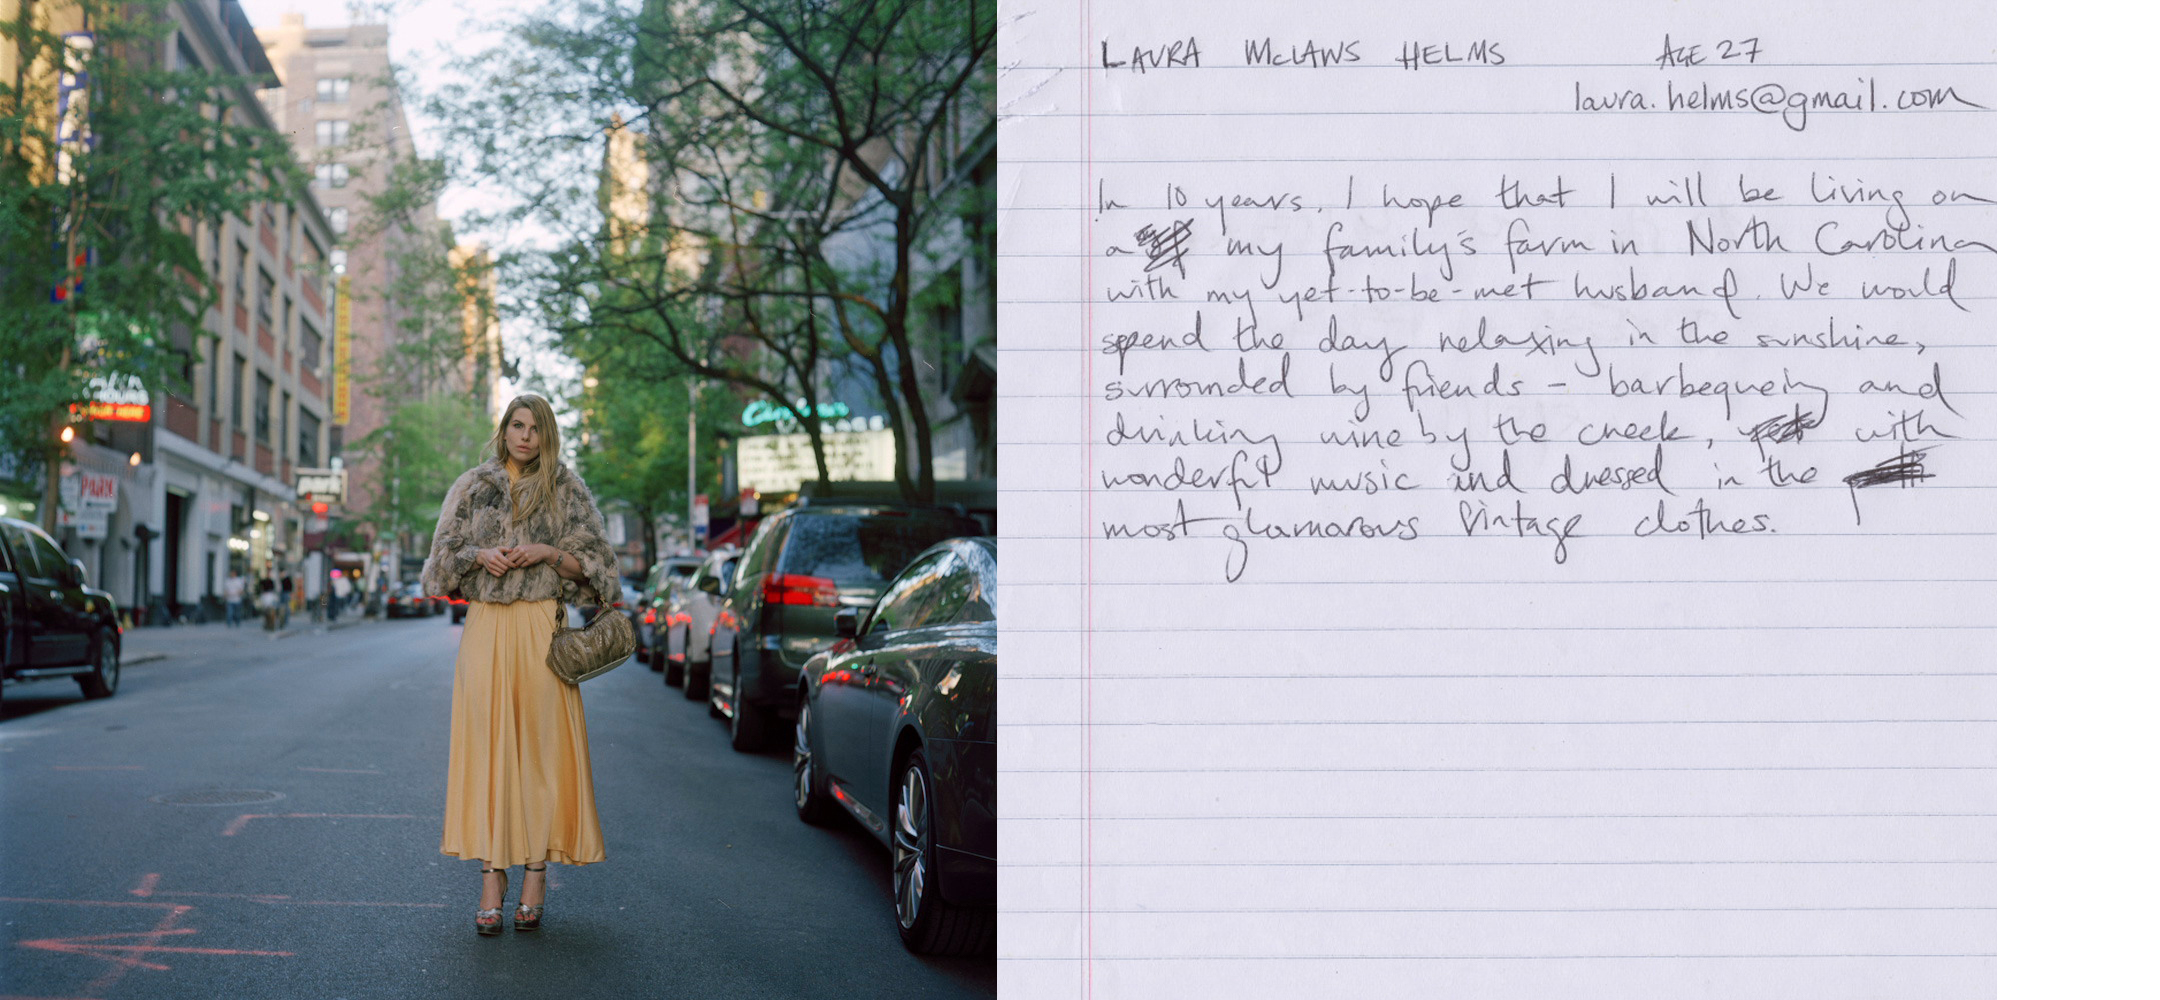 PARK
LAURA McLAWS HELMS AGE 27
laura.helms@gmail.com
In 10 years, I hope that I will be living on
a my family's farm in North Carolina
with my yet-to-be-met husband. We would
spend the day relaxing in the sunshine,
surrounded by friends – barbequeing and
drinking wine by the creek, with
wonderful music and dressed in the
most glamorous vintage clothes.